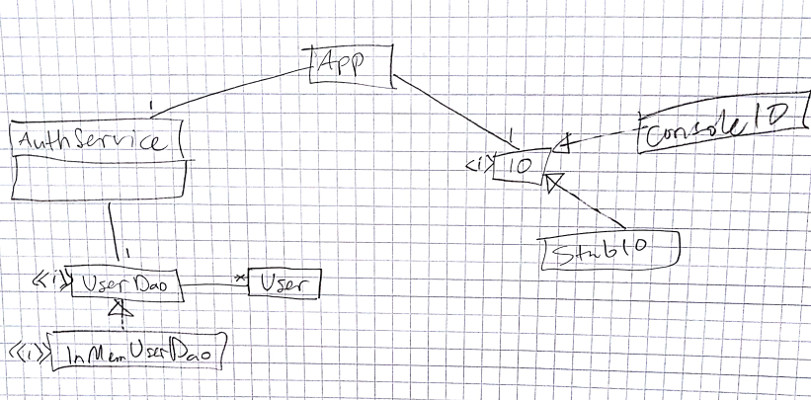 App
1
AuthService
1
<<i>> IO
ConsoleIO
StubIO
1
<<i>> UserDao
* User
<<i>> InMemUserDao